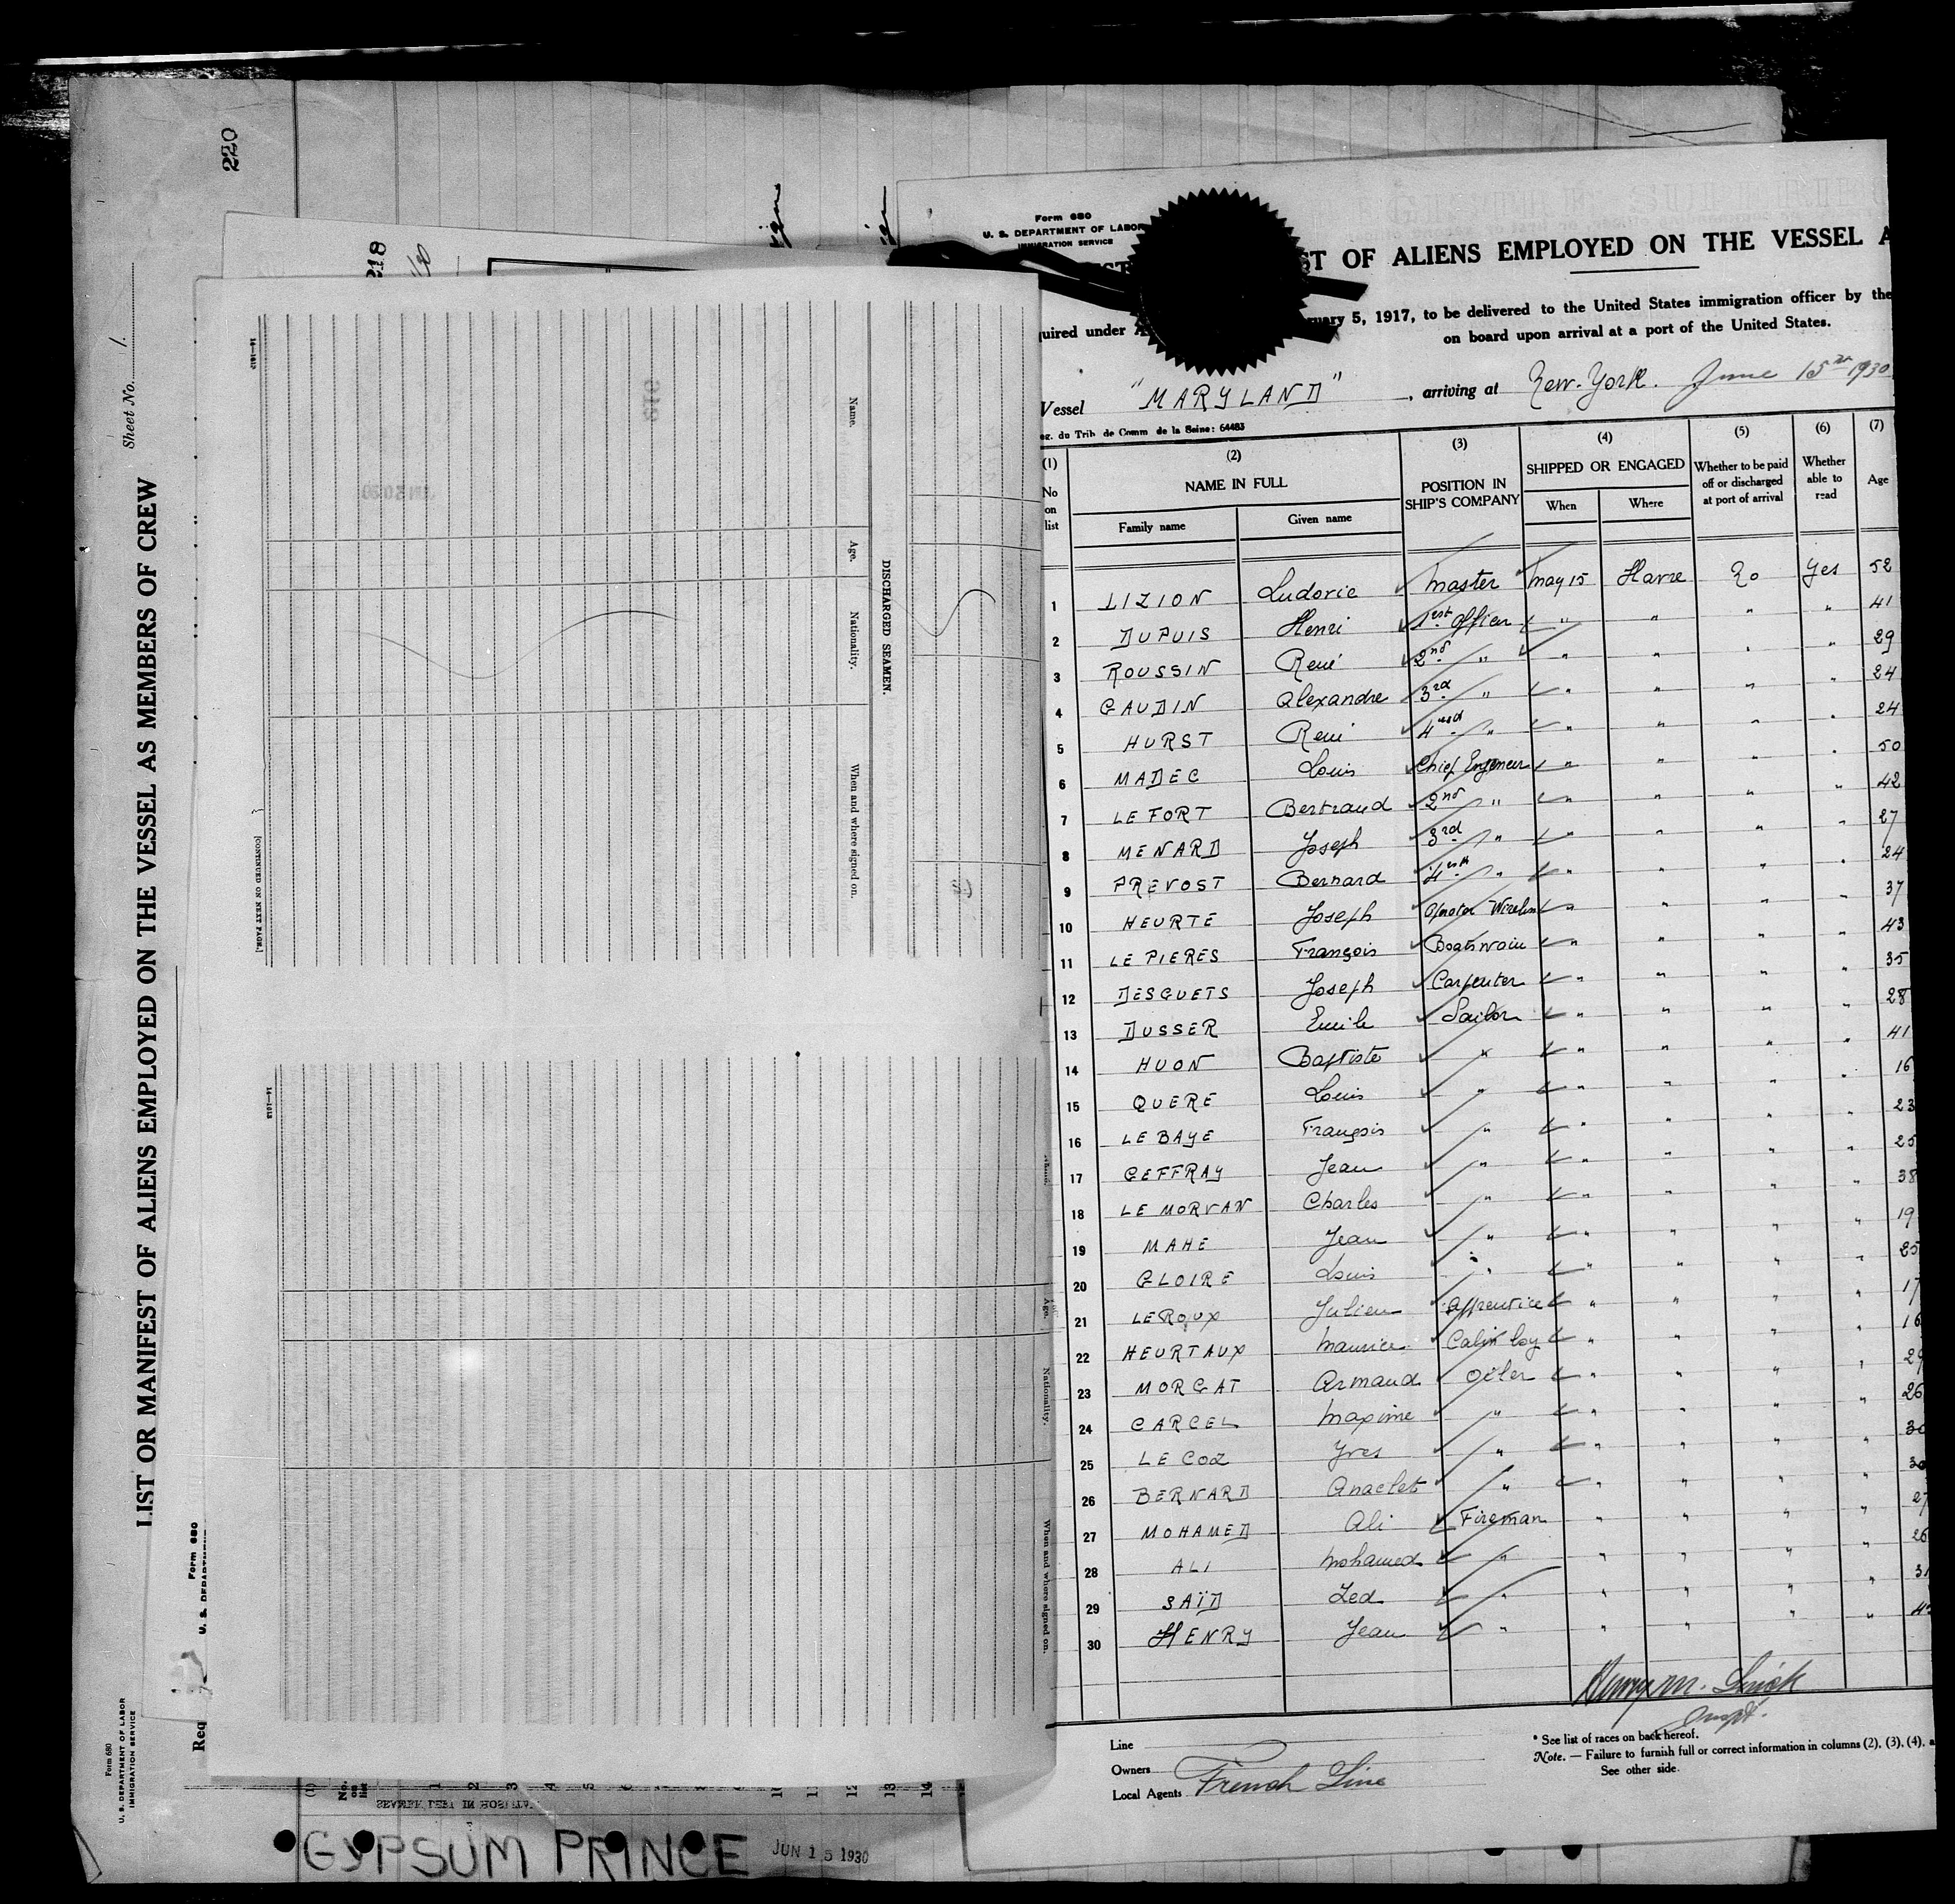 220
218
Sheet No. 1.
LIST OR MANIFEST OF ALIENS EMPLOYED ON THE VESSEL AS MEMBERS OF CREW
Form 680
U. S. DEPARTMENT OF LABOR
IMMIGRATION SERVICE
Form 680
U. S. DEPARTMENT
Req
DISCHARGED SEAMEN.
Name. Age. Nationality. When and where signed on.
[CONTINUED ON NEXT PAGE.]
Age. Nationality. When and where signed on.
(1) No. on list 1 2 3 4 5 6 7 8 9 10 11 12 13 14
GYPSUM PRINCE JUN 15 1930
Form 680
U. S. DEPARTMENT OF LABOR
IMMIGRATION SERVICE
ST OF ALIENS EMPLOYED ON THE VESSEL A
quired under A ruary 5, 1917, to be delivered to the United States immigration officer by the
on board upon arrival at a port of the United States.
Vessel "MARYLAND", arriving at New-York. June 15 1930
eg. du Trib. de Comm de la Seine: 64483
(1) (2) (3) (4) (5) (6) (7)
No on list NAME IN FULL POSITION IN SHIP'S COMPANY SHIPPED OR ENGAGED Whether to be paid off or discharged at port of arrival Whether able to read Age
Family name Given name When Where
1 LIZION Ludovic Master May 15 Havre No Yes 52
2 DUPUIS Henri 1est Officer " " " " 41
3 ROUSSIN René 2nd " " " " " 29
4 GAUDIN Alexandre 3rd " " " " " 24
5 HURST René " " " " " 24
6 MADEC Louis Chief Engeneer " " " " 50
7 LE FORT Bertrand 2nd " " " " " 42
8 MENARD Joseph 3rd " " " " " 27
9 PREVOST Bernard " " " " " 24
10 HEURTE Joseph Operator Wireless " " " " 37
11 LE PIERES François Boatswain " " " " 43
12 DESGUETS Joseph Carpenter " " " " 35
13 DUSSER Emile Sailor " " " " 28
14 HUON Baptiste " " " " " 41
15 QUERE Louis " " " " " 16
16 LE BAYE François " " " " " 23
17 GEFFRAY Jean " " " " " 25
18 LE MORVAN Charles " " " " " 38
19 MAHE Jean " " " " " 19
20 GLOIRE Louis " " " " " 25
21 LEROUX Julien Apprentice " " " " 17
22 HEURTAUX Maurice Cabin boy " " " " 16
23 MORGAT Armand Oiler " " " " 29
24 CARCEL Maxime " " " " " 26
25 LE COZ Yves " " " " " 30
26 BERNARD Anaclet " " " " "
27 MOHAMED Ali Fireman " " " " 27
28 ALI Mohamed " " " " " 26
29 SAÏD Zed " " " " " 31
30 HENRY Jean " " " " "
Inspt.
Line
Owners
Local Agents French Line
* See list of races on back hereof.
Note. — Failure to furnish full or correct information in columns (2), (3), (4), a
See other side.